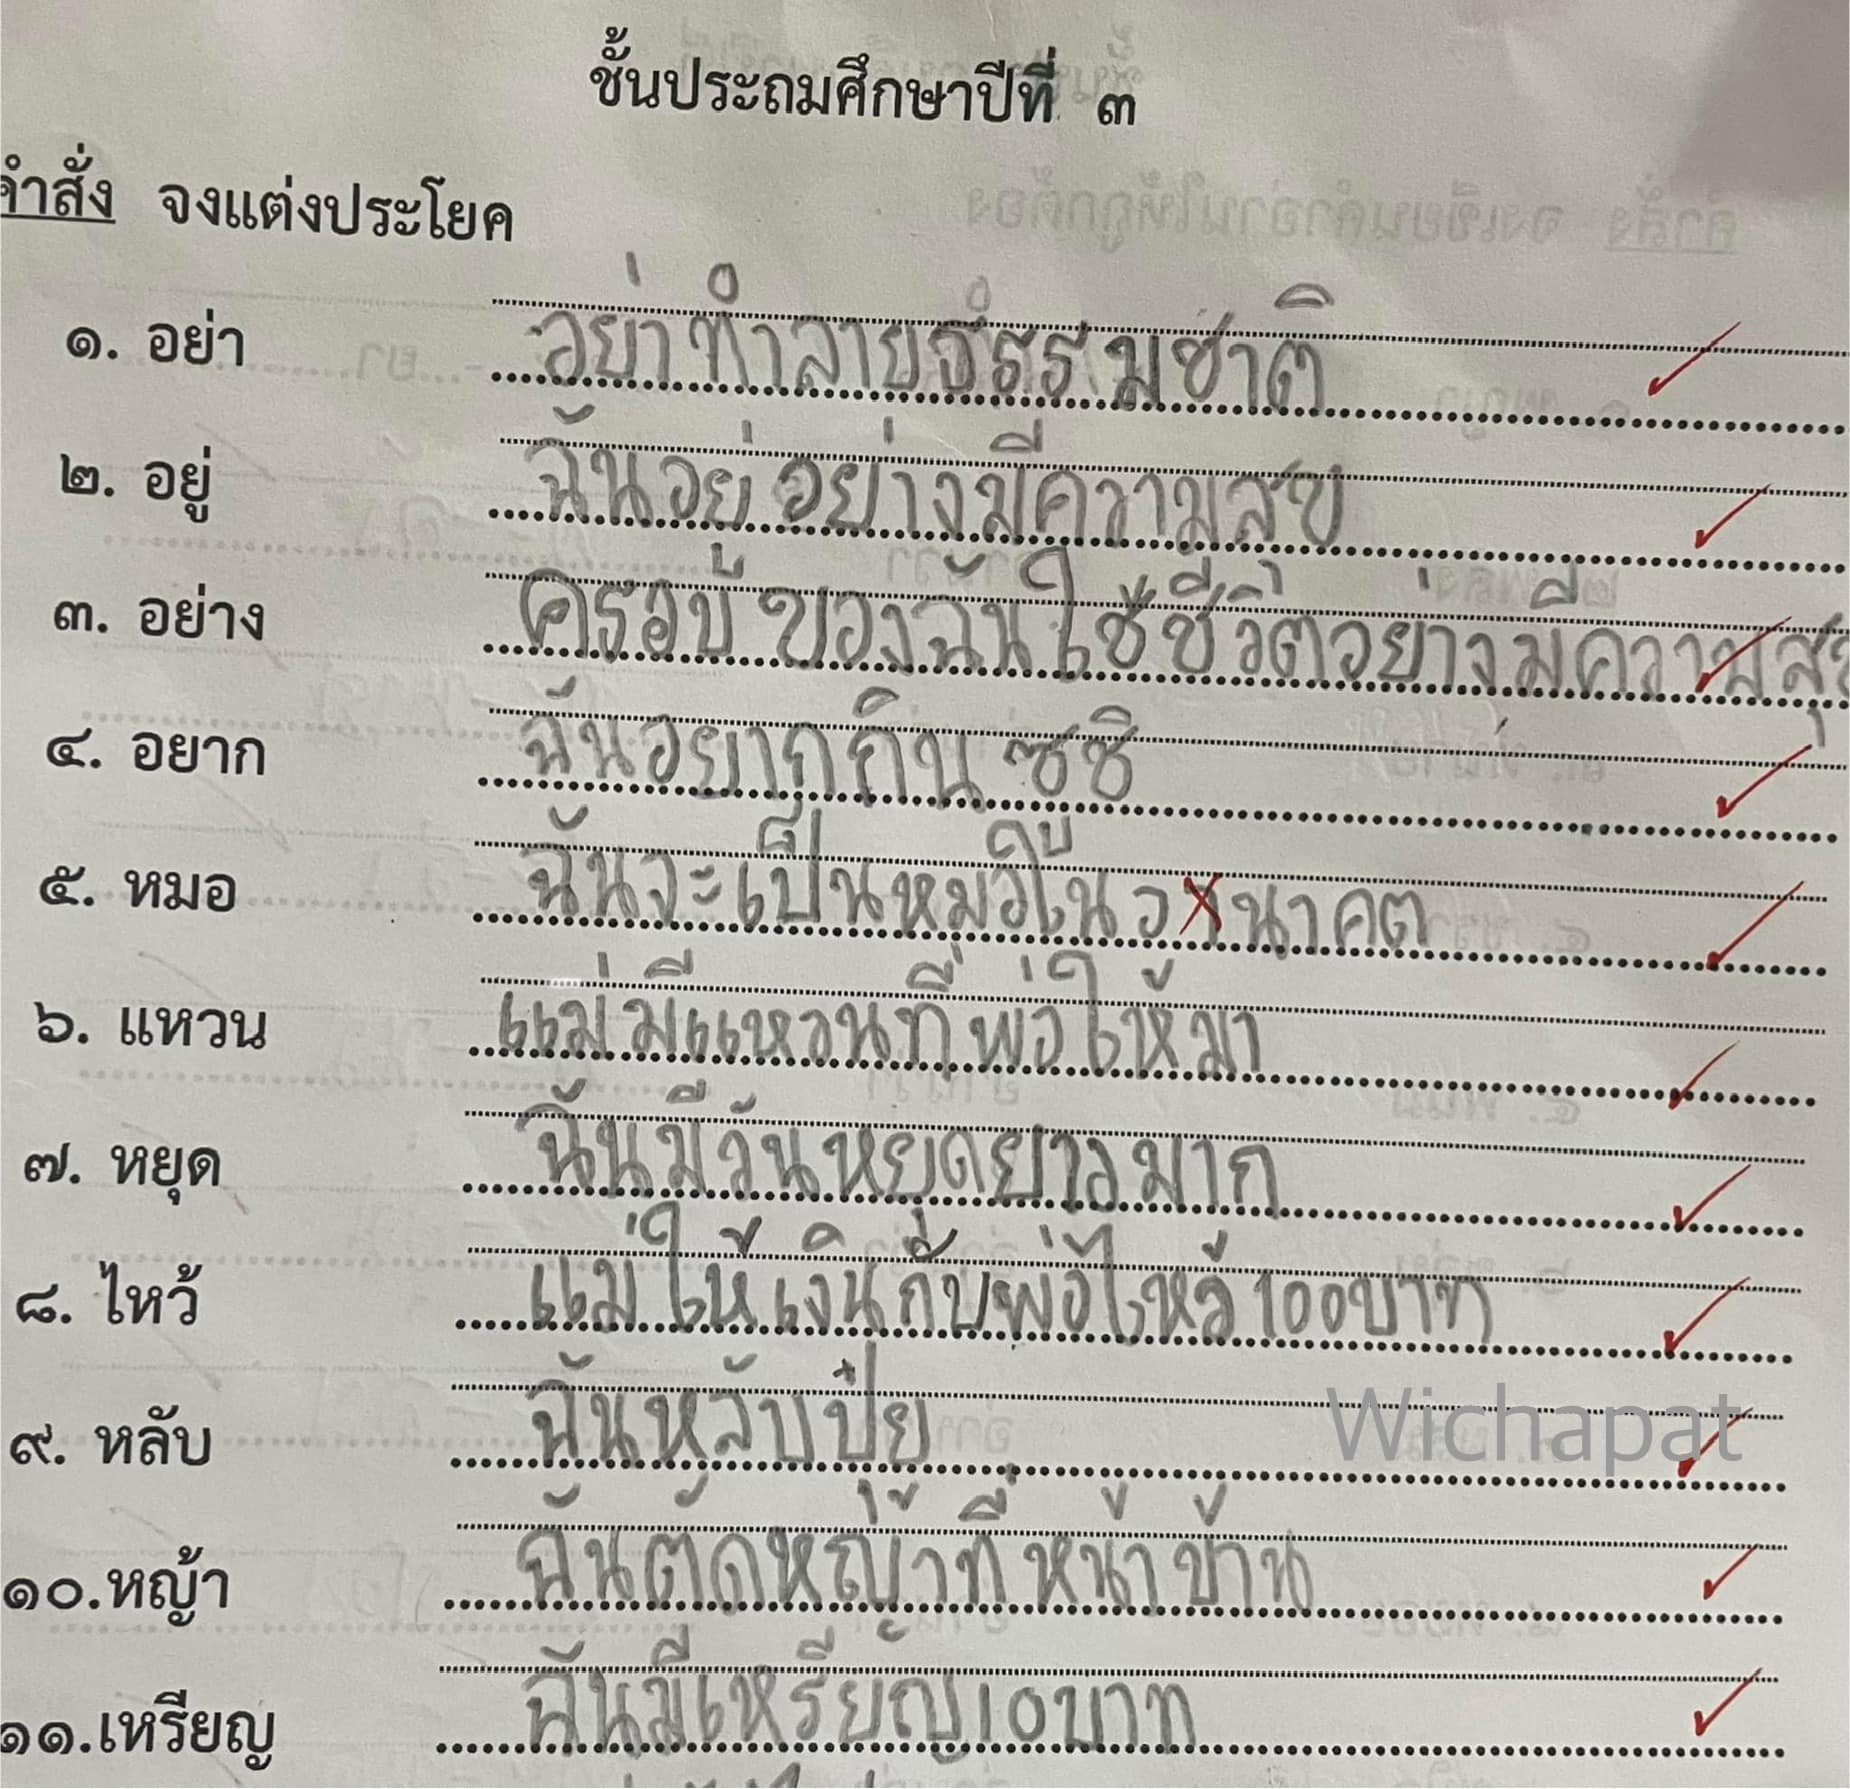 ชั้นประถมศึกษาปีที่ ๓
คำสั่ง จงแต่งประโยค
๑. อย่า อย่าทำลายธรรมชาติ
๒. อยู่ ฉันอยู่อย่างมีความสุข
๓. อย่าง ครอบ ของฉันใช้ชีวิตอย่างมีความสุข
๔. อยาก ฉันอยากกินซูชิ
๕. หมอ ฉันจะเป็นหมอในอนาคต
๖. แหวน แม่มีแหวนที่พ่อให้มา
๗. หยุด ฉันมีวันหยุดยาวมาก
๘. ไหว้ แม่ให้เงินกับพ่อไหว้ 100บาท
๙. หลับ ฉันหลับปุ๋ย
๑๐.หญ้า ฉันตัดหญ้าที่หน้าบ้าน
๑๑.เหรียญ ฉันมีเหรียญ10บาท
Wichapat